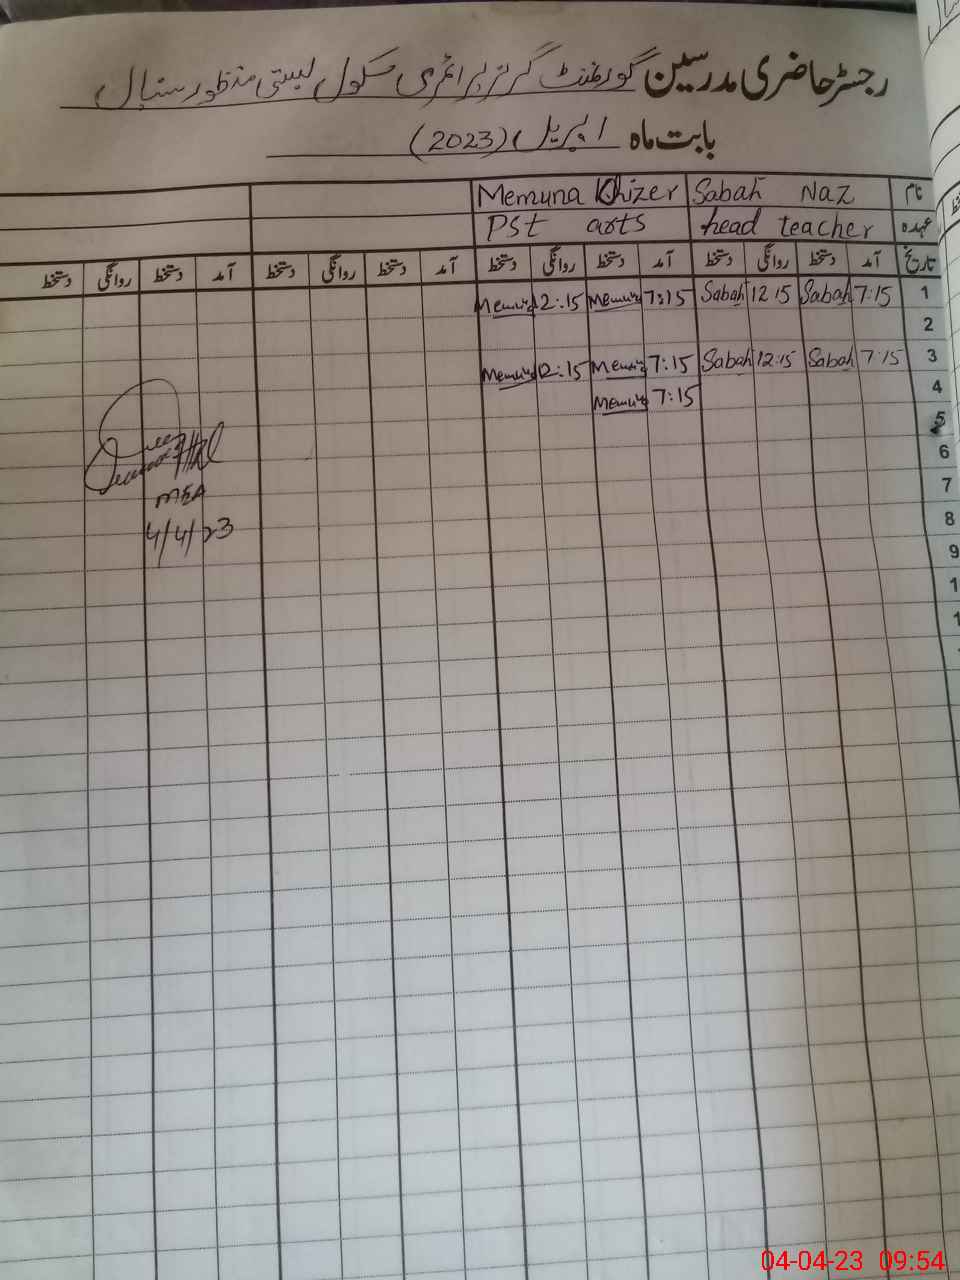 رجسٹر حاضری مدرسین گورنمنٹ گرلز پرائمری سکول بستی منظور سنپال
بابت ماہ اپریل (2023)
نام Sabah Naz Memuna Khizer
عہدہ head teacher Pst arts
تاریخ آمد دستخط روانگی دستخط آمد دستخط روانگی دستخط آمد دستخط روانگی دستخط آمد دستخط روانگی دستخط
1 7:15 Sabah 12:15 Sabah 7:15 Memuna 12:15 Memuna
2
3 7:15 Sabah 12:15 Sabah 7:15 Memuna 12:15 Memuna
4 7:15 Memuna
5
6
7
8
9
1
1
MEA
4/4/23
04-04-23 09:54